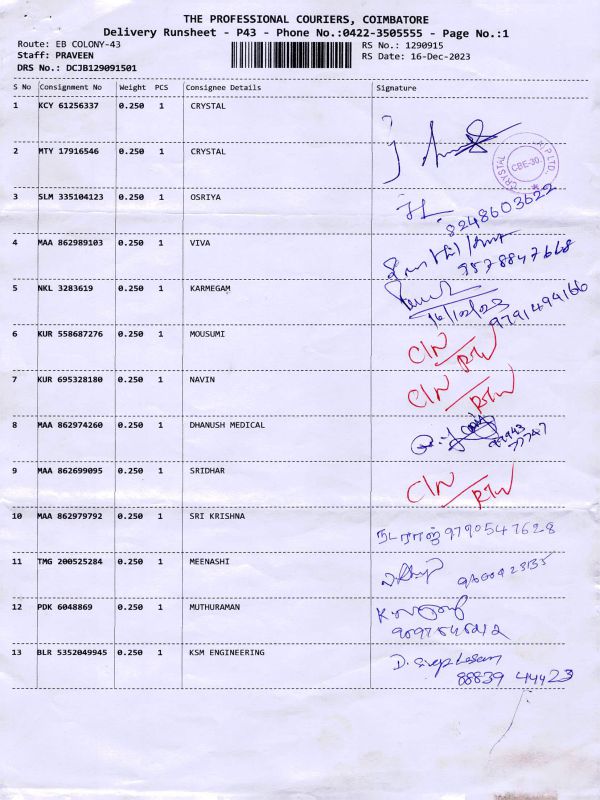 THE PROFESSIONAL COURIERS, COIMBATORE
Delivery Runsheet - P43 - Phone No.:0422-3505555 - Page No.:1
Route: EB COLONY-43 RS No.: 1290915
Staff: PRAVEEN RS Date: 16-Dec-2023
DRS No.: DCJB129091501
S No Consignment No Weight PCS Consignee Details Signature
1 KCY 61256337 0.250 1 CRYSTAL
2 MTY 17916546 0.250 1 CRYSTAL
CRYSTAL (P) LTD. CBE-30.
3 SLM 335104123 0.250 1 OSRIYA
8248603622
4 MAA 862989103 0.250 1 VIVA
9578847668
5 NKL 3283619 0.250 1 KARMEGAM
16/12/2023 9791494166
6 KUR 558687276 0.250 1 MOUSUMI
C/N / RTN
7 KUR 695328180 0.250 1 NAVIN
C/N / RTN
8 MAA 862974260 0.250 1 DHANUSH MEDICAL
9 MAA 862699095 0.250 1 SRIDHAR
C/N / RTN
10 MAA 862979792 0.250 1 SRI KRISHNA
நடராஜ் 9790547628
11 TMG 200525284 0.250 1 MEENASHI
12 PDK 6048869 0.250 1 MUTHURAMAN
13 BLR 5352049945 0.250 1 KSM ENGINEERING
88839 44423